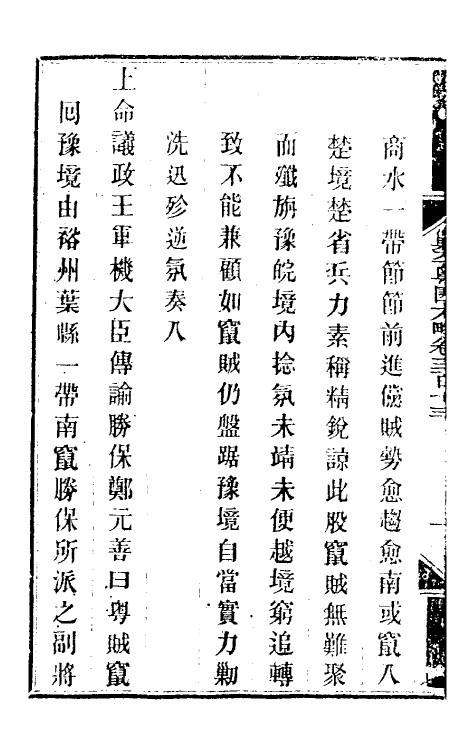 商水一帶節節前進儻賊勢愈趨愈南或竄入
楚境楚省兵力素稱精銳諒此股竄賊無難聚
而殲旃豫皖境內捻氛未靖未便越境窮追轉
致不能兼顧如竄賊仍盤踞豫境自當實力勦
洗迅殄逆氛奏入
上命議政王軍機大臣傳諭勝保鄭元善曰粵賊竄
回豫境由裕州葉縣一帶南竄勝保所派之副將